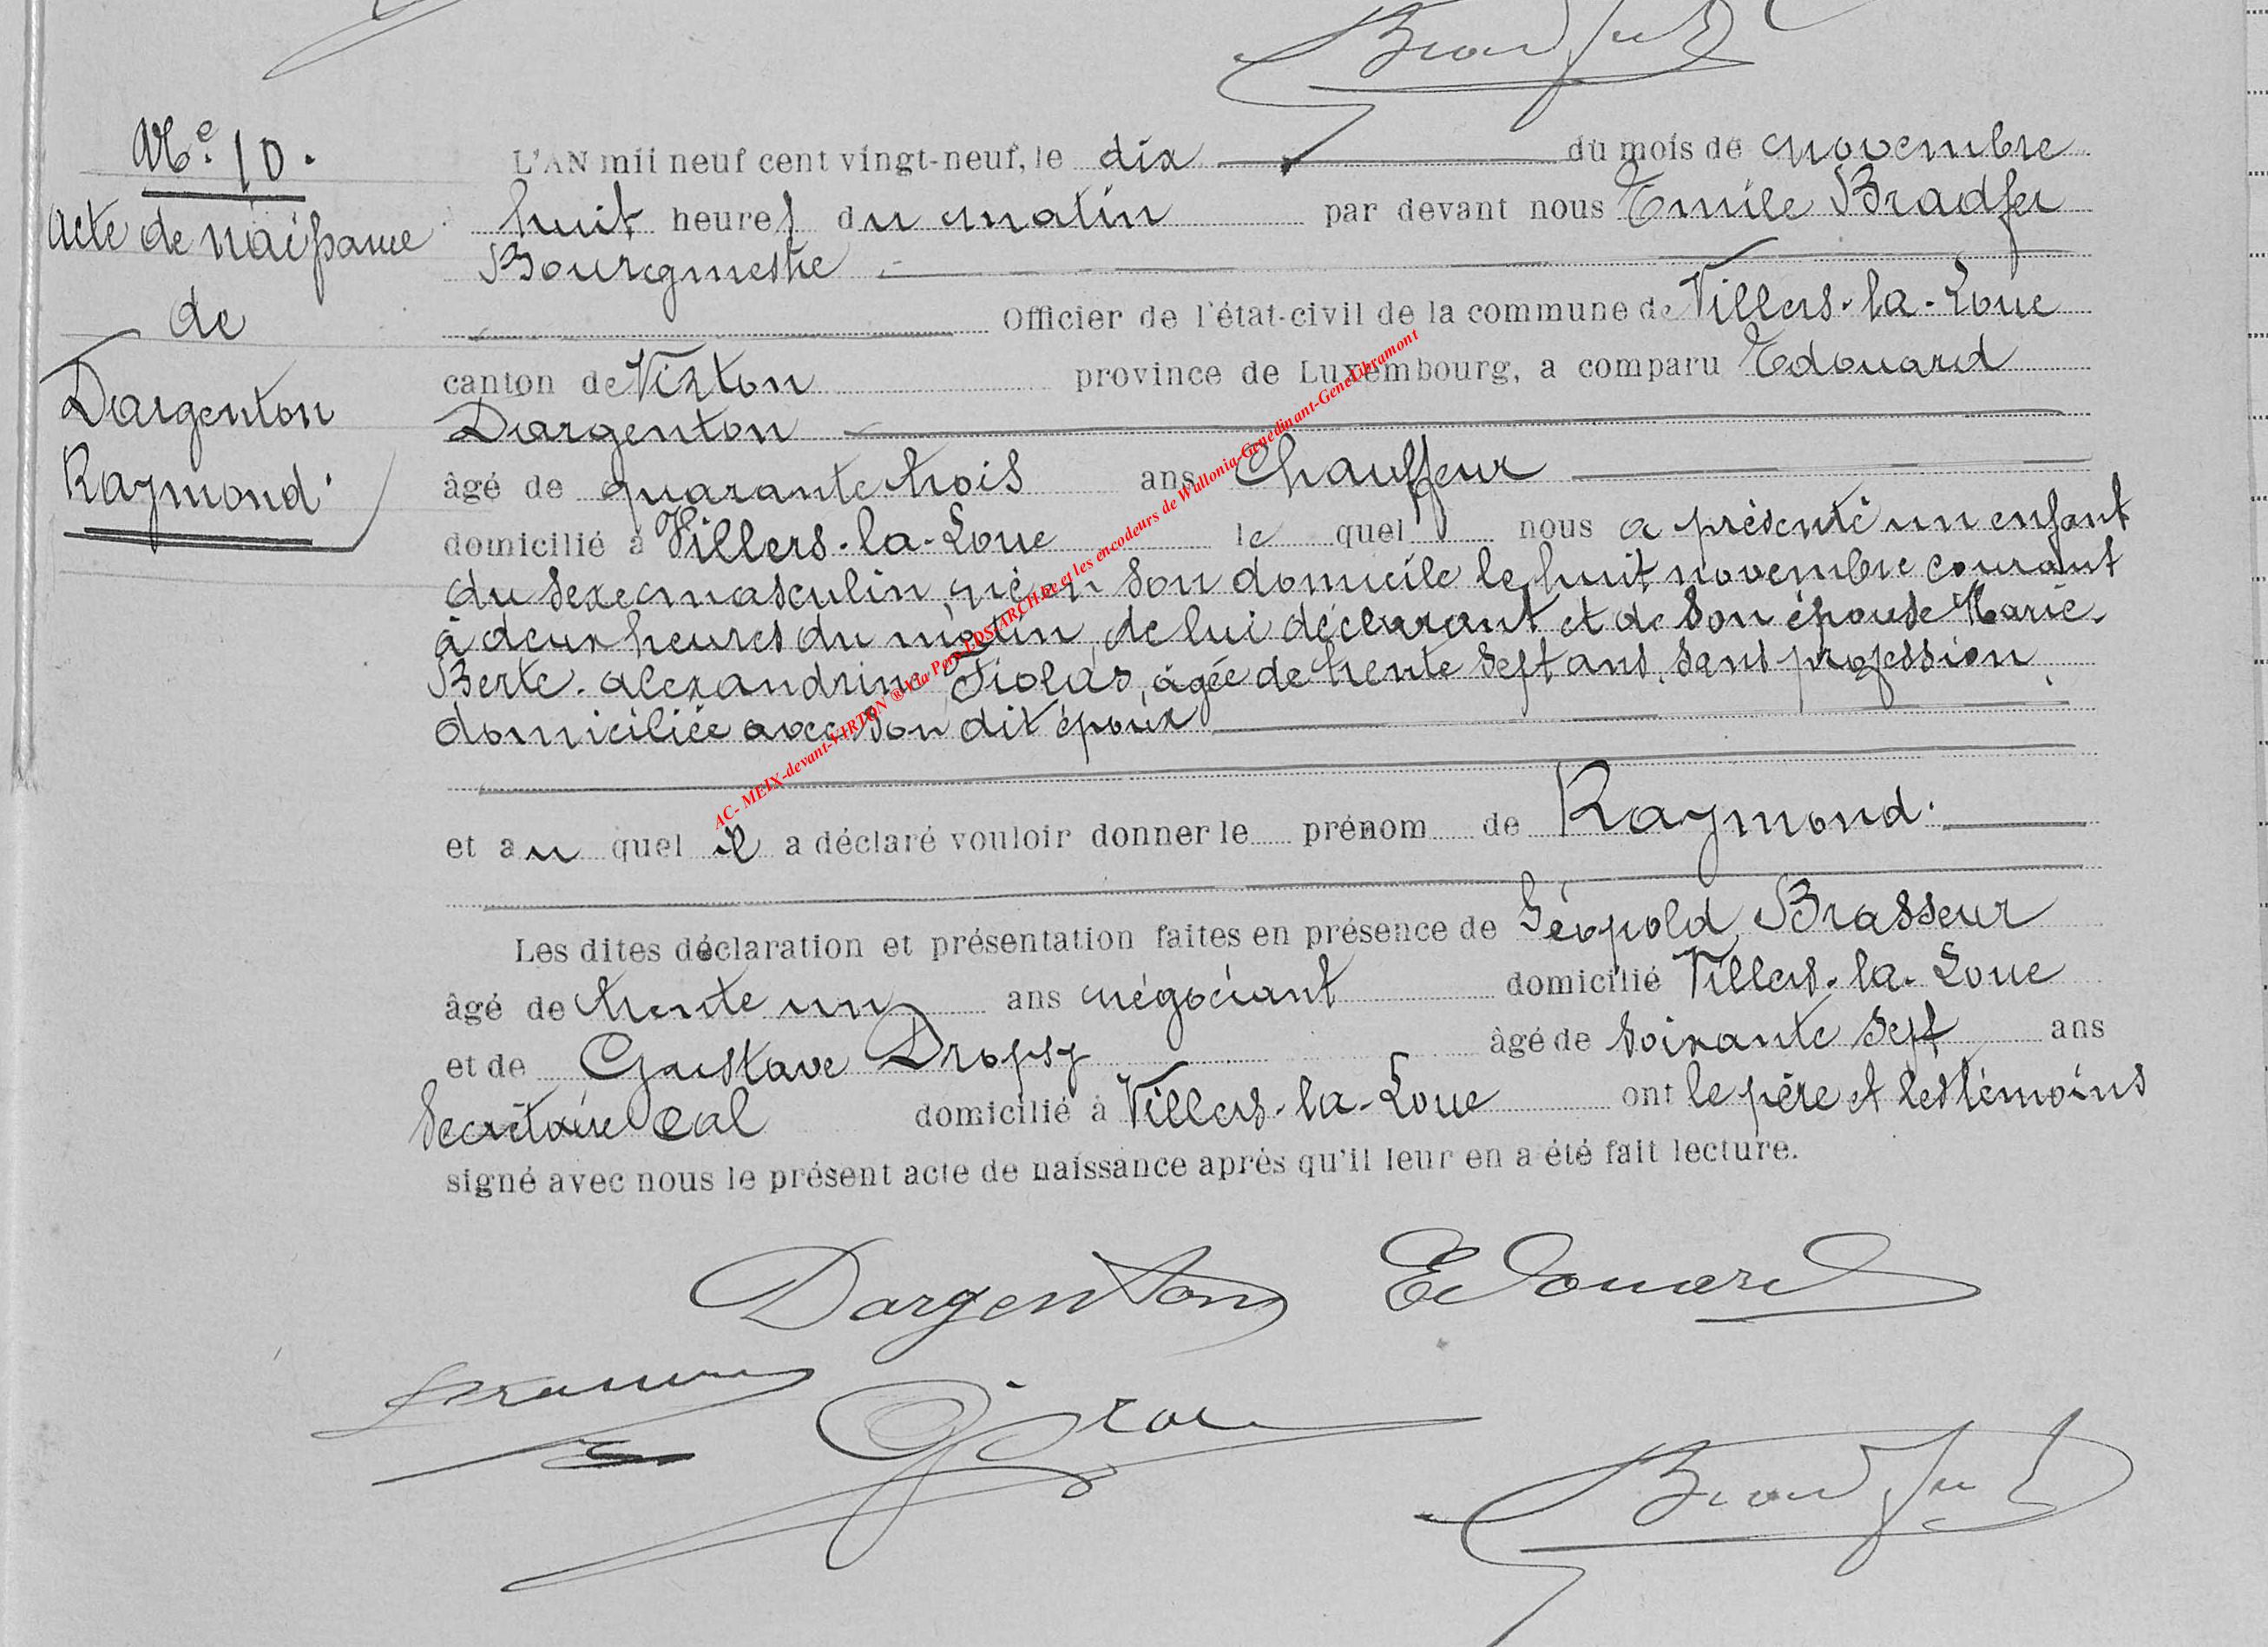 Bradfer
No. 10.
Acte de naissance
de
Dargenton
Raymond.
L'AN mil neuf cent vingt-neuf, le dix du mois de novembre
huit heures du matin par devant nous Emile Bradfer
Bourgmestre
Officier de l'état-civil de la commune de Villers-la-Loue
canton de Virton province de Luxembourg, a comparu Edouard
Dargenton
âgé de quarante trois ans Chauffeur
domicilié à Villers-la-Loue le quel nous a présenté un enfant
du sexe masculin, né en son domicile le huit novembre courant
à deux heures du matin, de lui déclarant et de son épouse Marie-
Berte-Alexandrine Fiolas, âgée de trente sept ans, sans profession,
domiciliée avec son dit époux
et au quel il a déclaré vouloir donner le prénom de Raymond.
Les dites déclaration et présentation faites en présence de Léopold Brasseur
âgé de trente un ans négociant domicilié Villers-la-Loue
et de Gustave Dropsy âgé de soixante sept ans
Secrétaire Cal domicilié à Villers-la-Loue ont le père et les témoins
signé avec nous le présent acte de naissance après qu'il leur en a été fait lecture.
Dargenton Edouard
Bradfer
AC- MEIX-devant-VIRTON ® via Perso DSIARCH.be et les encodeurs de Wallonia-Genedinant-GeneLibramont